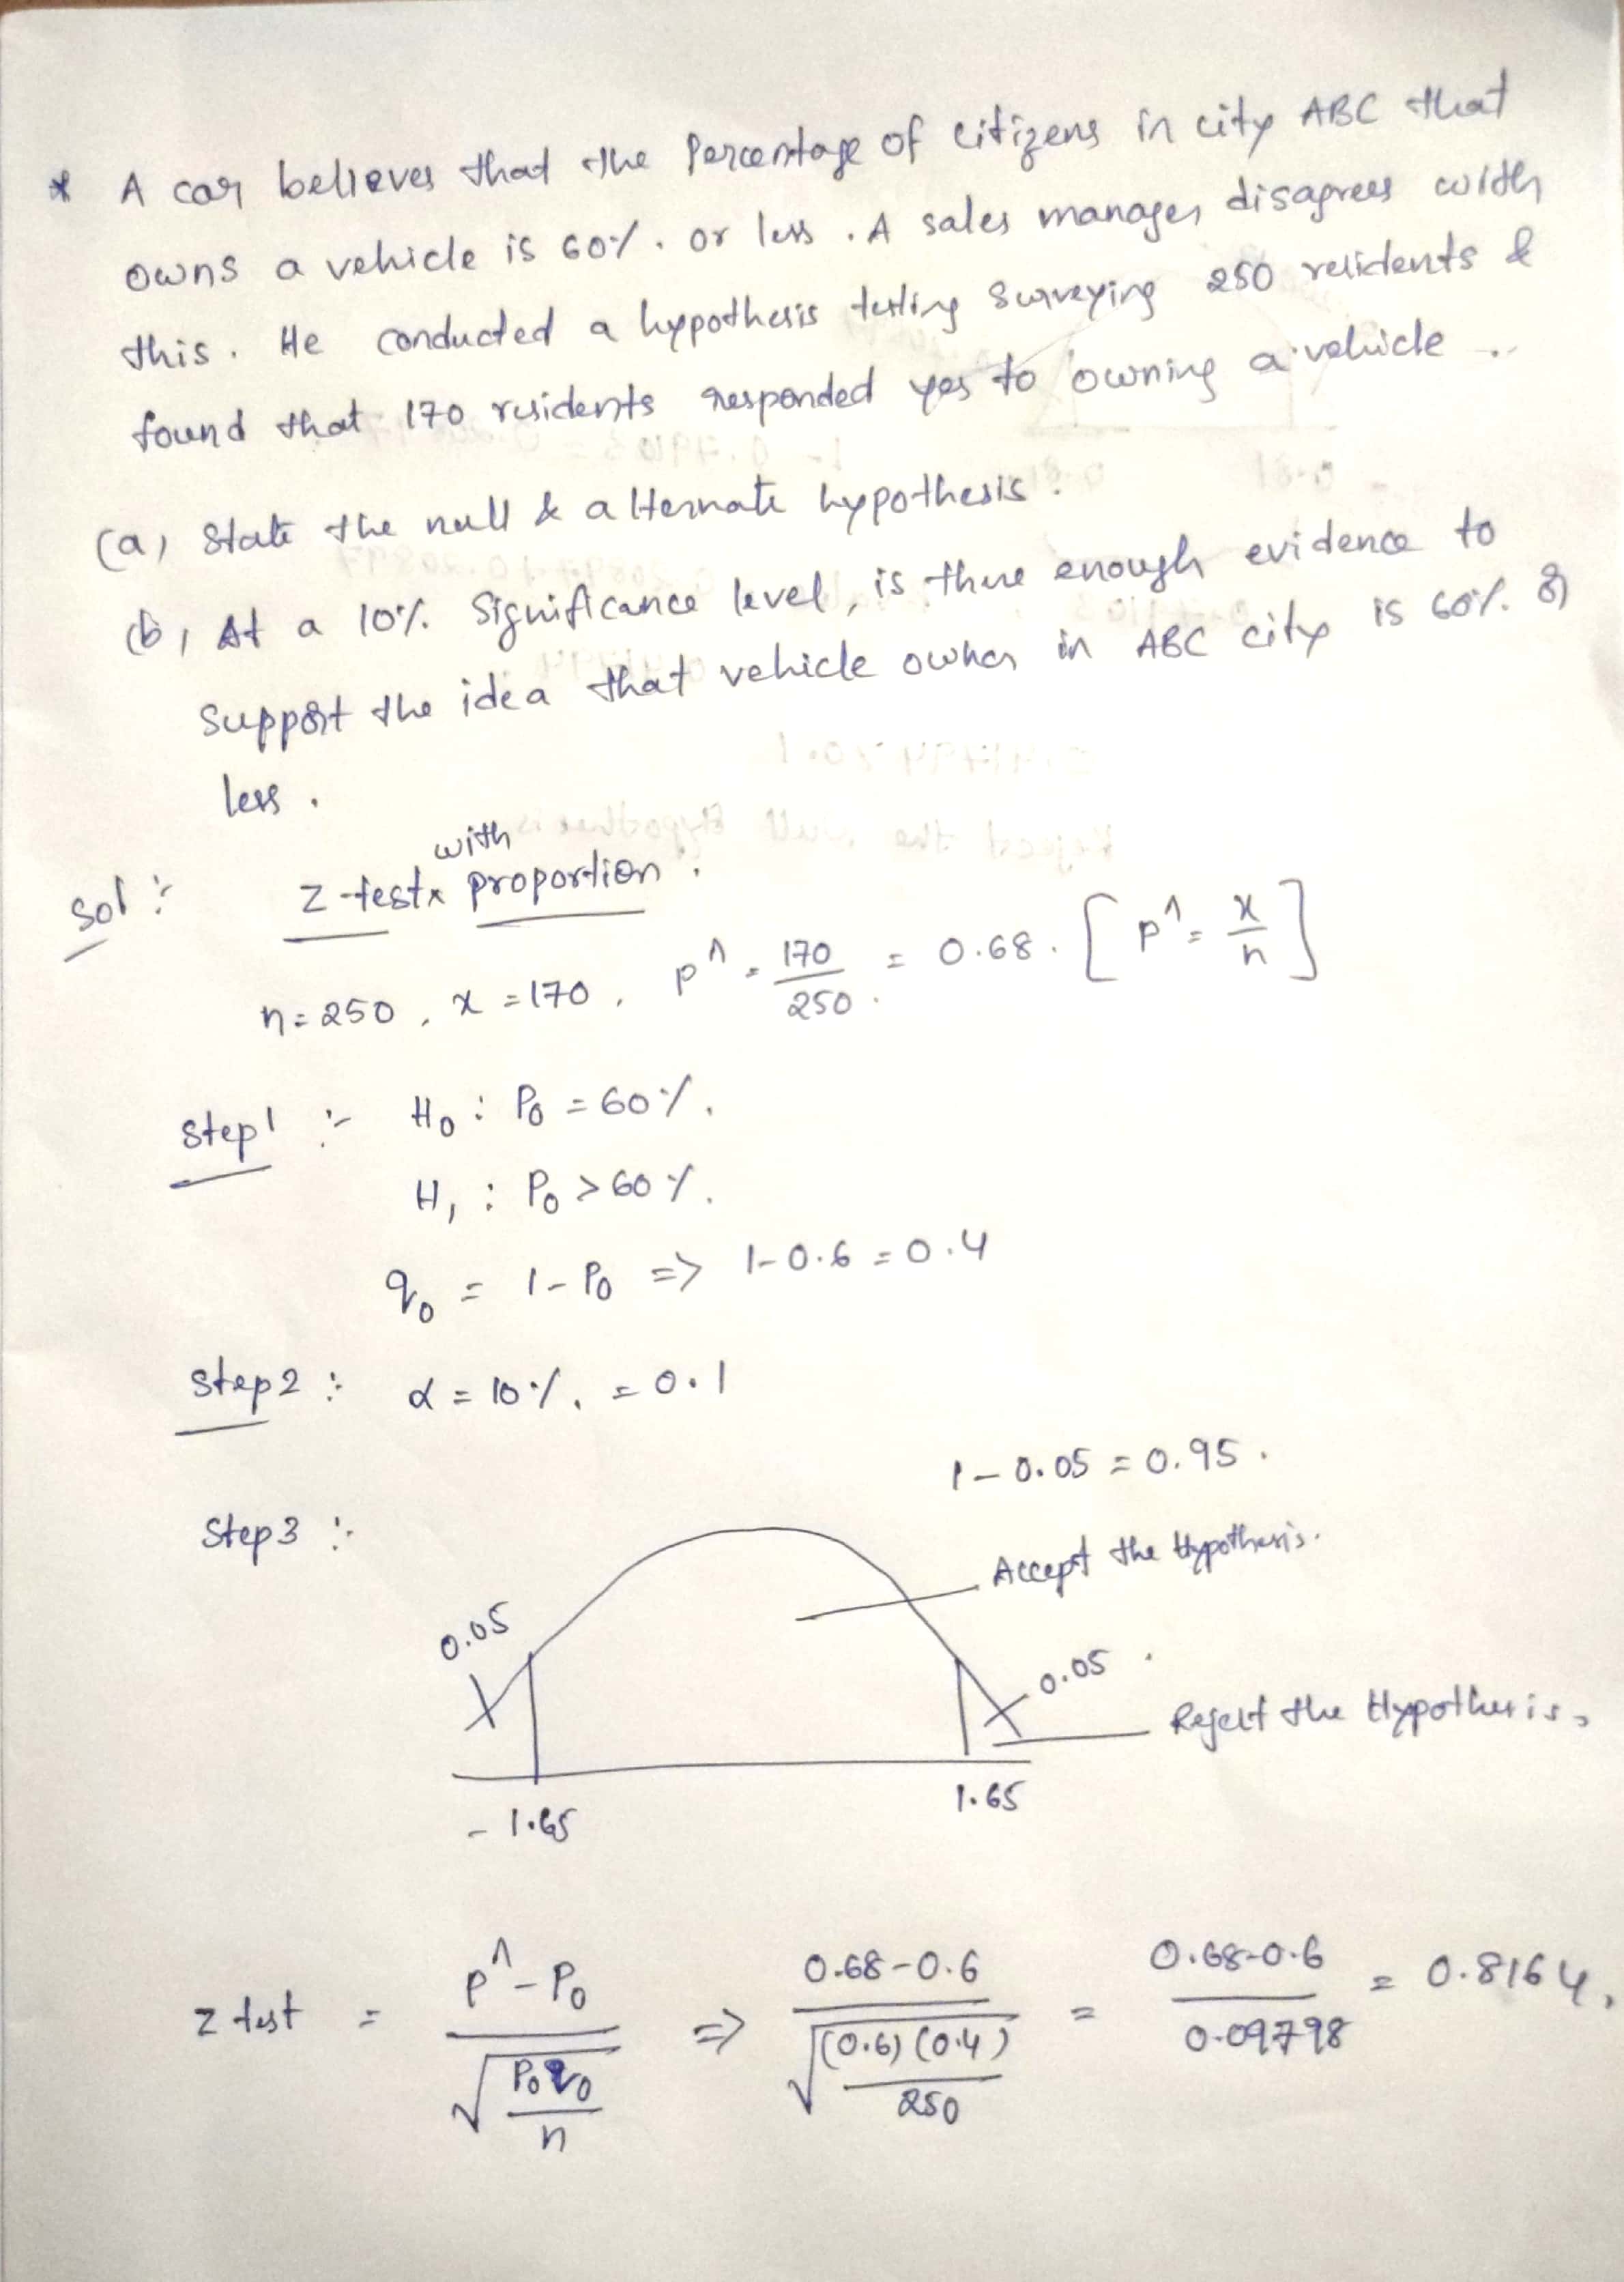 * A car believes that the Percentage of citizens in city ABC that
owns a vehicle is 60%. or less. A sales manager disagrees with
this. He conducted a hypothesis testing surveying 250 residents &
found that 170 residents responded yes to owning a vehicle..
(a) State the null & alternate hypothesis.
(b) At a 10%. Significance level, is there enough evidence to
Support the idea that vehicle owner in ABC city is 60%. or
less.
Sol :- Z-test with proportion.
n = 250, x = 170, p^ = 170/250 = 0.68. [p^ = x/n]
Step 1 :- H0 : P0 = 60%.
H1 : P0 > 60%.
q0 = 1 - P0 => 1-0.6 = 0.4
Step 2 :- α = 10%. = 0.1
1 - 0.05 = 0.95.
Step 3 :-
Accept the Hypothesis.
0.05
0.05.
Reject the Hypothesis,
- 1.65
1.65
Z test = (p^ - P0) / √(P0 q0 / n) => (0.68 - 0.6) / √((0.6) (0.4) / 250) = (0.68-0.6) / 0.09798 = 0.8164,